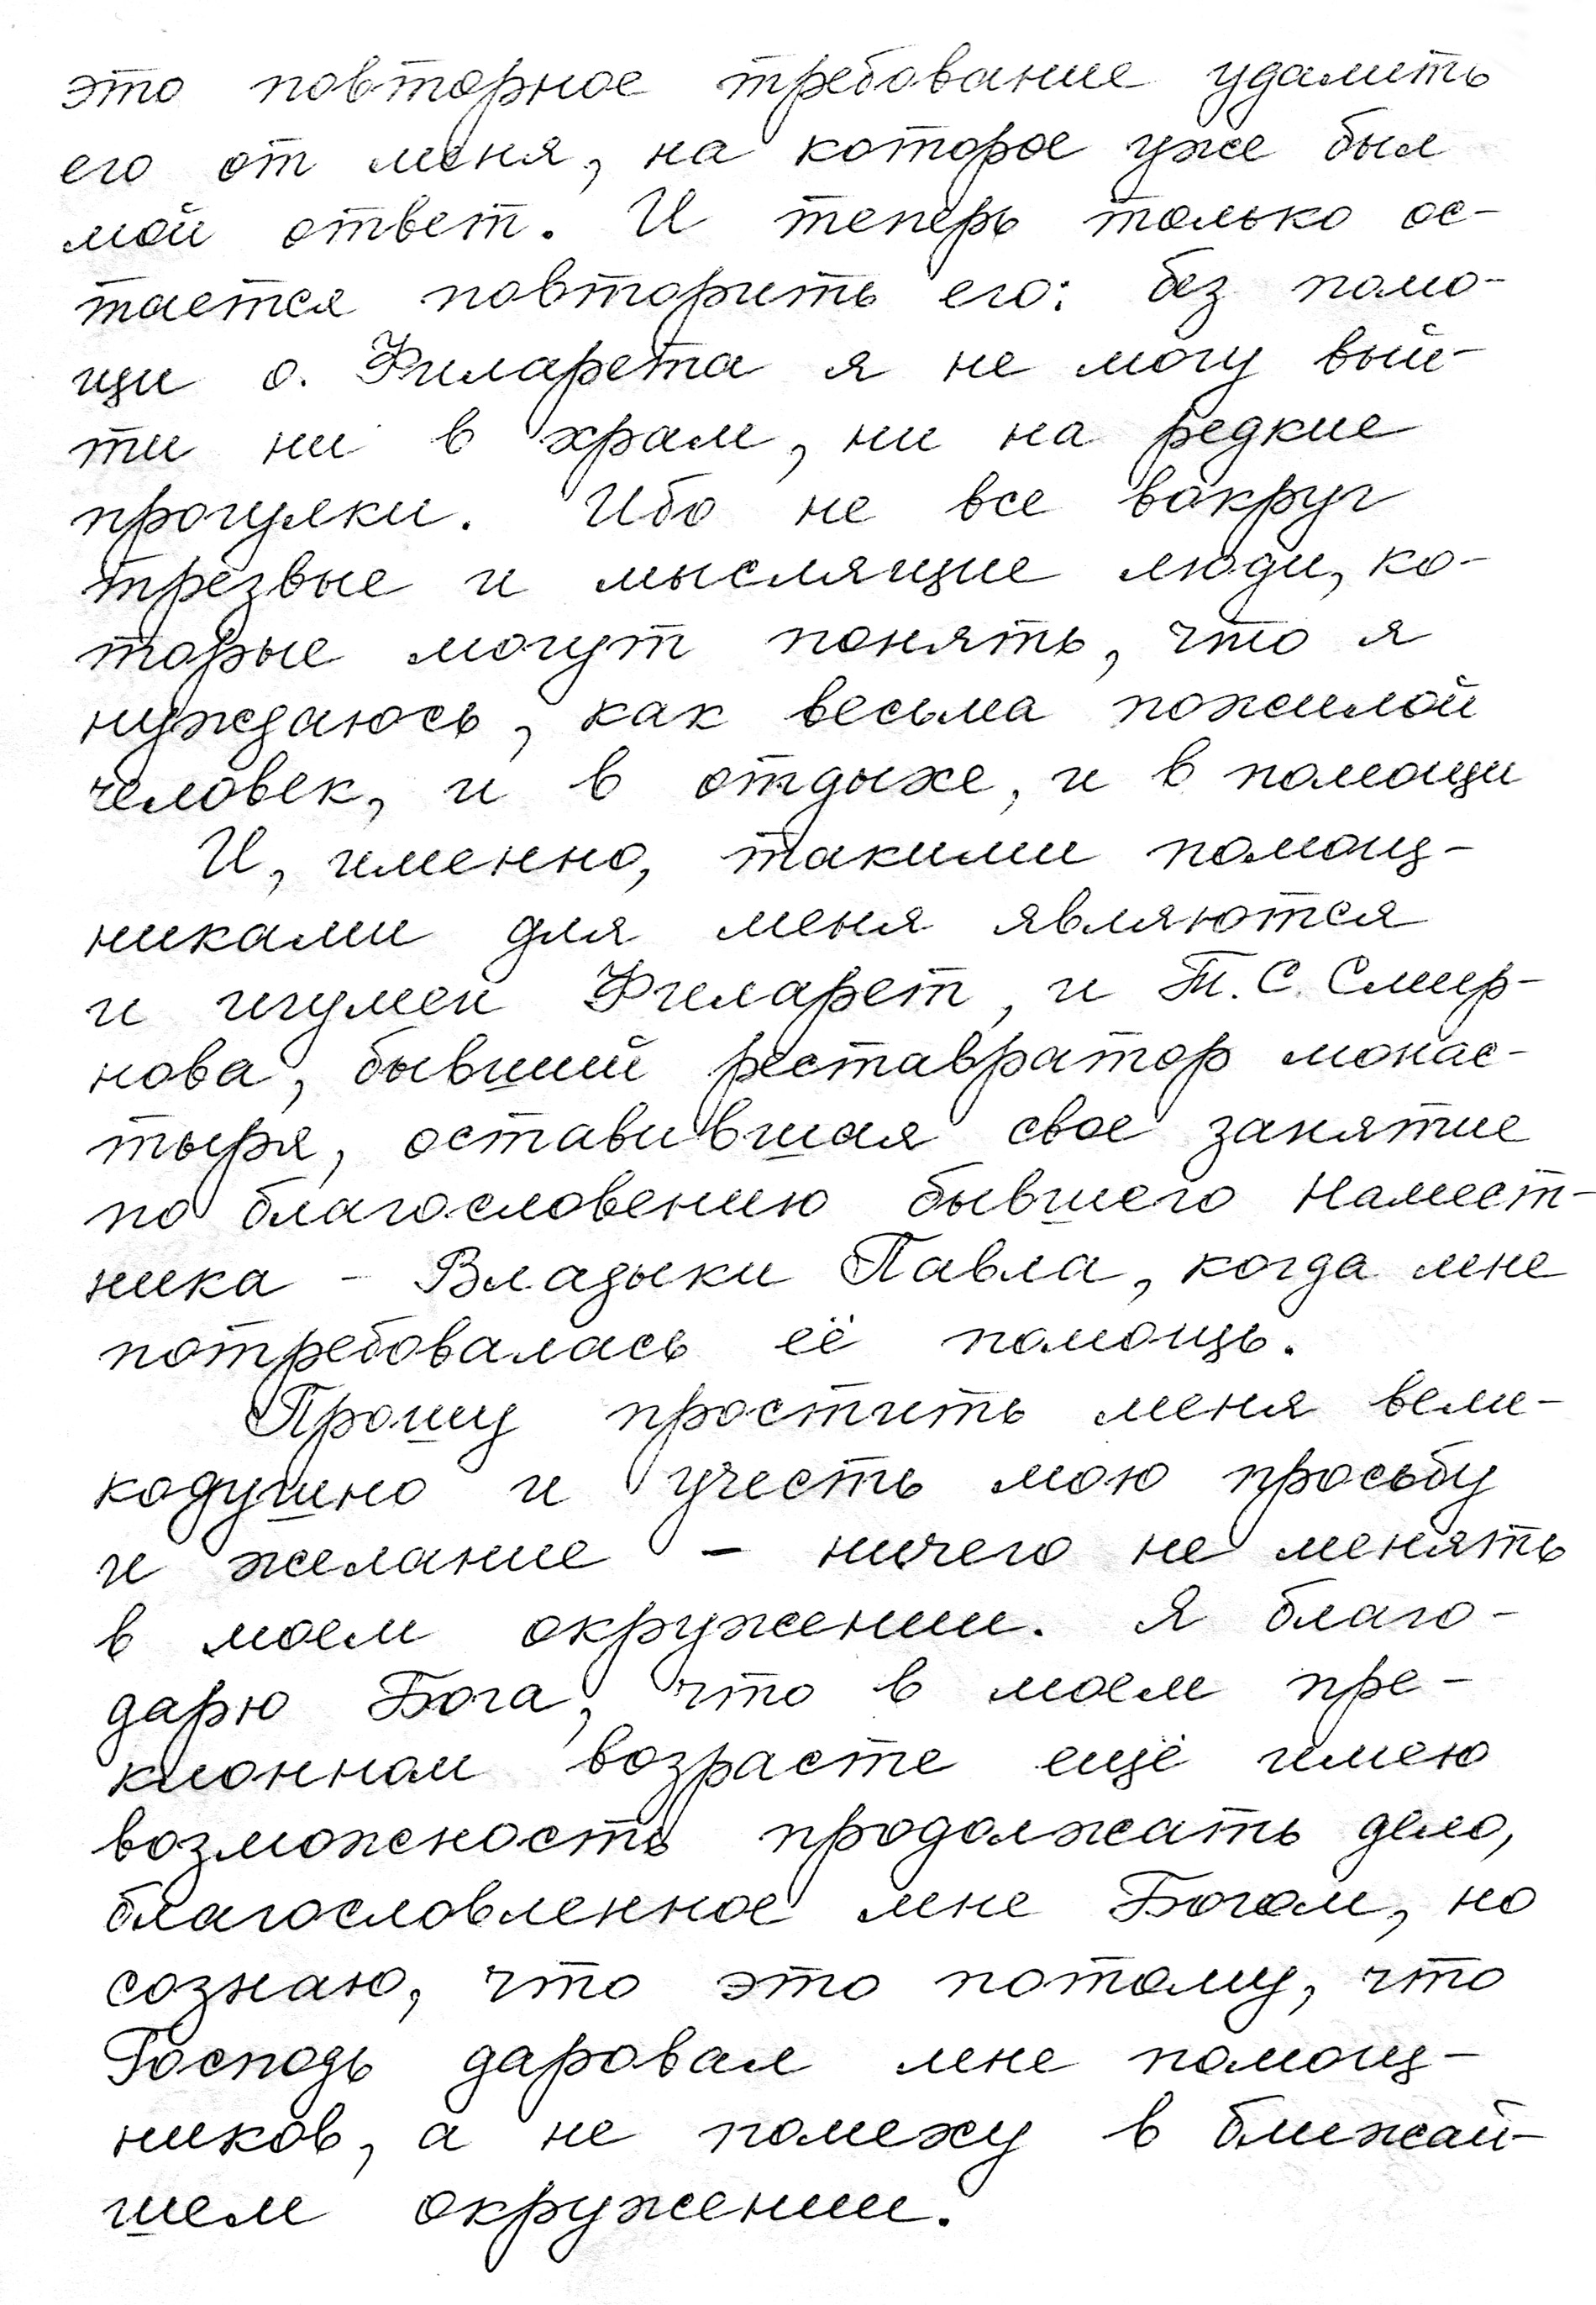 это повторное требование удалить
его от меня, на которое уже был
мой ответ. И теперь только ос-
тается повторить его: без помо-
щи о. Филарета я не могу вый-
ти ни в храм, ни на редкие
прогулки. Ибо не все вокруг
трезвые и мыслящие люди, ко-
торые могут понять, что я
нуждаюсь, как весьма пожилой
человек, и в отдыхе, и в помощи
И, именно, такими помощ-
никами для меня являются
и игумен Филарет, и Т. С. Смир-
нова, бывший реставратор монас-
тыря, оставившая свое занятие
по благословению бывшего Намест-
ника - Владыки Павла, когда мне
потребовалась её помощь.
Прошу простить меня вели-
кодушно и учесть мою просьбу
и желание - ничего не менять
в моем окружении. Я благо-
дарю Бога, что в моем пре-
клонном возрасте ещё имею
возможность продолжать дело,
благословленное мне Богом, но
сознаю, что это потому, что
Господь даровал мне помощ-
ников, а не помеху в ближай-
шем окружении.